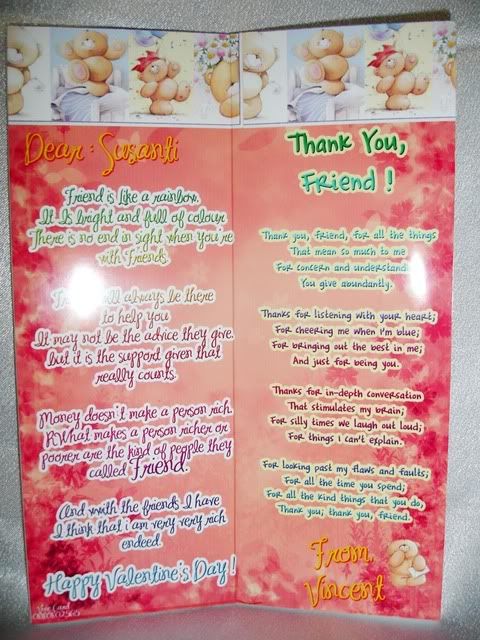 Dear : Susanti
Friend is like a rainbow.
It Is bright and full of colour
There is no end in sight when you're
with Friends.
always be there
to help you
It may not be the advice they give.
but it is the support given that
really counts.
Money doesn't make a person rich.
What makes a person richer or
poorer are the kind of people they
called Friend.
And with the friends I have
I think that i am very very rich
endeed.
Happy Valentine's Day !
Thank You,
Friend !
Thank you, friend, for all the things
That mean so much to me
For concern and
You give abundantly.
Thanks for listening with your heart;
For cheering me when I'm blue;
For bringing out the best in me;
And just for being you.
Thanks for in-depth conversation
That stimulates my brain;
For silly times we laugh out loud;
For things I can't explain.
For looking past my flaws and faults;
For all the time you spend;
For all the kind things that you do,
Thank you; thank you, friend.
From,
Vincent